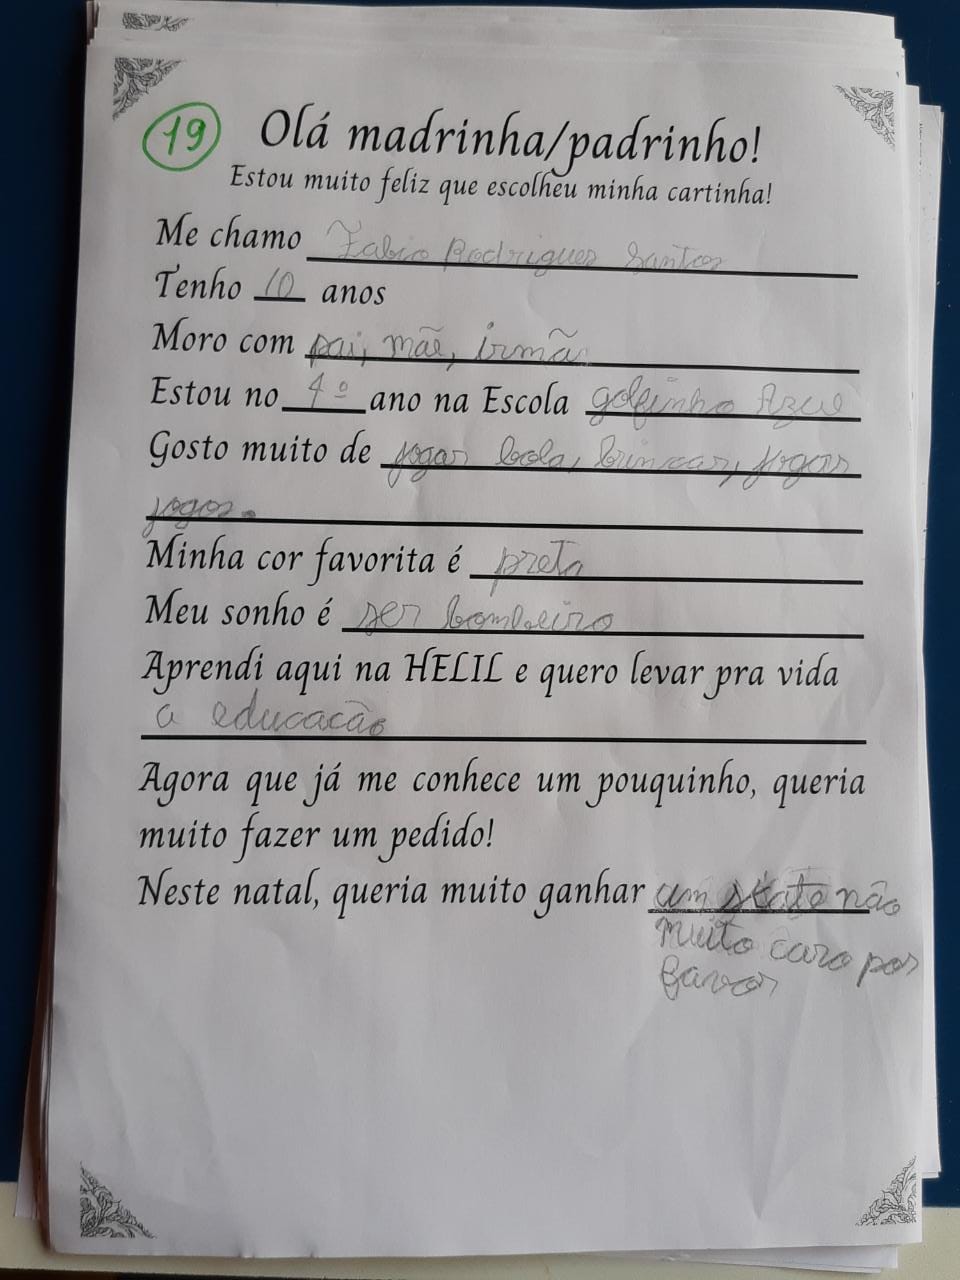 19 Olá madrinha/padrinho!
Estou muito feliz que escolheu minha cartinha!
Me chamo Fabio Rodrigues Santos
Tenho 10 anos
Moro com pai, mãe, irmã
Estou no 4º ano na Escola golfinho Azul
Gosto muito de jogar bola, brincar, jogar
jogos.
Minha cor favorita é preto
Meu sonho é ser bombeiro
Aprendi aqui na HELIL e quero levar pra vida
a educacão
Agora que já me conhece um pouquinho, queria
muito fazer um pedido!
Neste natal, queria muito ganhar um skate não
muito caro por
favor